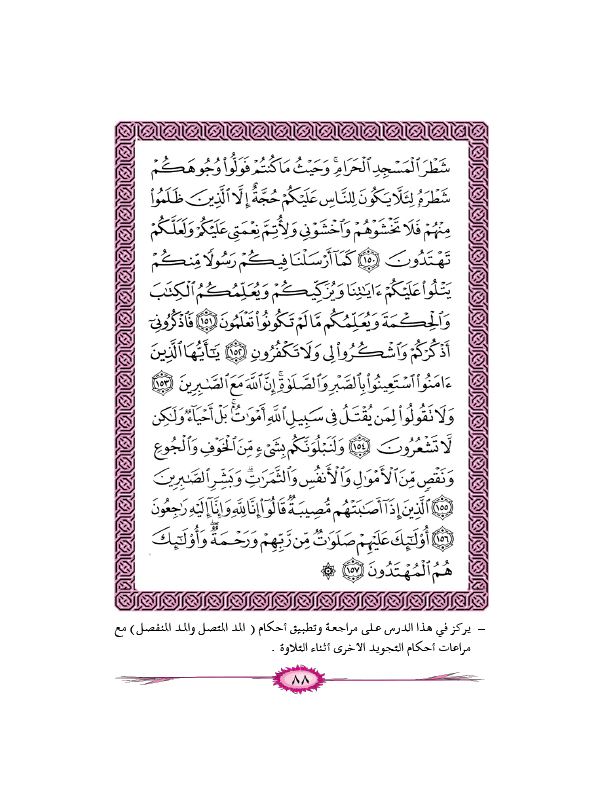 شَطْرَ ٱلْمَسْجِدِ ٱلْحَرَامِۚ وَحَيْثُ مَا كُنتُمْ فَوَلُّوا۟ وُجُوهَكُمْ
شَطْرَهُۥ لِئَلَّا يَكُونَ لِلنَّاسِ عَلَيْكُمْ حُجَّةٌ إِلَّا ٱلَّذِينَ ظَلَمُوا۟
مِنْهُمْ فَلَا تَخْشَوْهُمْ وَٱخْشَوْنِى وَلِأُتِمَّ نِعْمَتِى عَلَيْكُمْ وَلَعَلَّكُمْ
تَهْتَدُونَ ١٥٠ كَمَآ أَرْسَلْنَا فِيكُمْ رَسُولًا مِّنكُمْ
يَتْلُوا۟ عَلَيْكُمْ ءَايَٰتِنَا وَيُزَكِّيكُمْ وَيُعَلِّمُكُمُ ٱلْكِتَٰبَ
وَٱلْحِكْمَةَ وَيُعَلِّمُكُم مَّا لَمْ تَكُونُوا۟ تَعْلَمُونَ ١٥١ فَٱذْكُرُونِىٓ
أَذْكُرْكُمْ وَٱشْكُرُوا۟ لِى وَلَا تَكْفُرُونِ ١٥٢ يَٰٓأَيُّهَا ٱلَّذِينَ
ءَامَنُوا۟ ٱسْتَعِينُوا۟ بِٱلصَّبْرِ وَٱلصَّلَوٰةِۚ إِنَّ ٱللَّهَ مَعَ ٱلصَّٰبِرِينَ ١٥٣
وَلَا تَقُولُوا۟ لِمَن يُقْتَلُ فِى سَبِيلِ ٱللَّهِ أَمْوَٰتٌۢۚ بَلْ أَحْيَآءٌ وَلَٰكِن
لَّا تَشْعُرُونَ ١٥٤ وَلَنَبْلُوَنَّكُم بِشَىْءٍ مِّنَ ٱلْخَوْفِ وَٱلْجُوعِ
وَنَقْصٍ مِّنَ ٱلْأَمْوَٰلِ وَٱلْأَنفُسِ وَٱلثَّمَرَٰتِۗ وَبَشِّرِ ٱلصَّٰبِرِينَ
١٥٥ ٱلَّذِينَ إِذَآ أَصَٰبَتْهُم مُّصِيبَةٌ قَالُوٓا۟ إِنَّا لِلَّهِ وَإِنَّآ إِلَيْهِ رَٰجِعُونَ
١٥٦ أُو۟لَٰٓئِكَ عَلَيْهِمْ صَلَوَٰتٌ مِّن رَّبِّهِمْ وَرَحْمَةٌۖ وَأُو۟لَٰٓئِكَ
هُمُ ٱلْمُهْتَدُونَ ١٥٧
– يركز في هذا الدرس على مراجعة وتطبيق أحكام ( المد المتصل والمد المنفصل) مع
مراعات أحكام التجويد الأخرى أثناء التلاوة .
٨٨